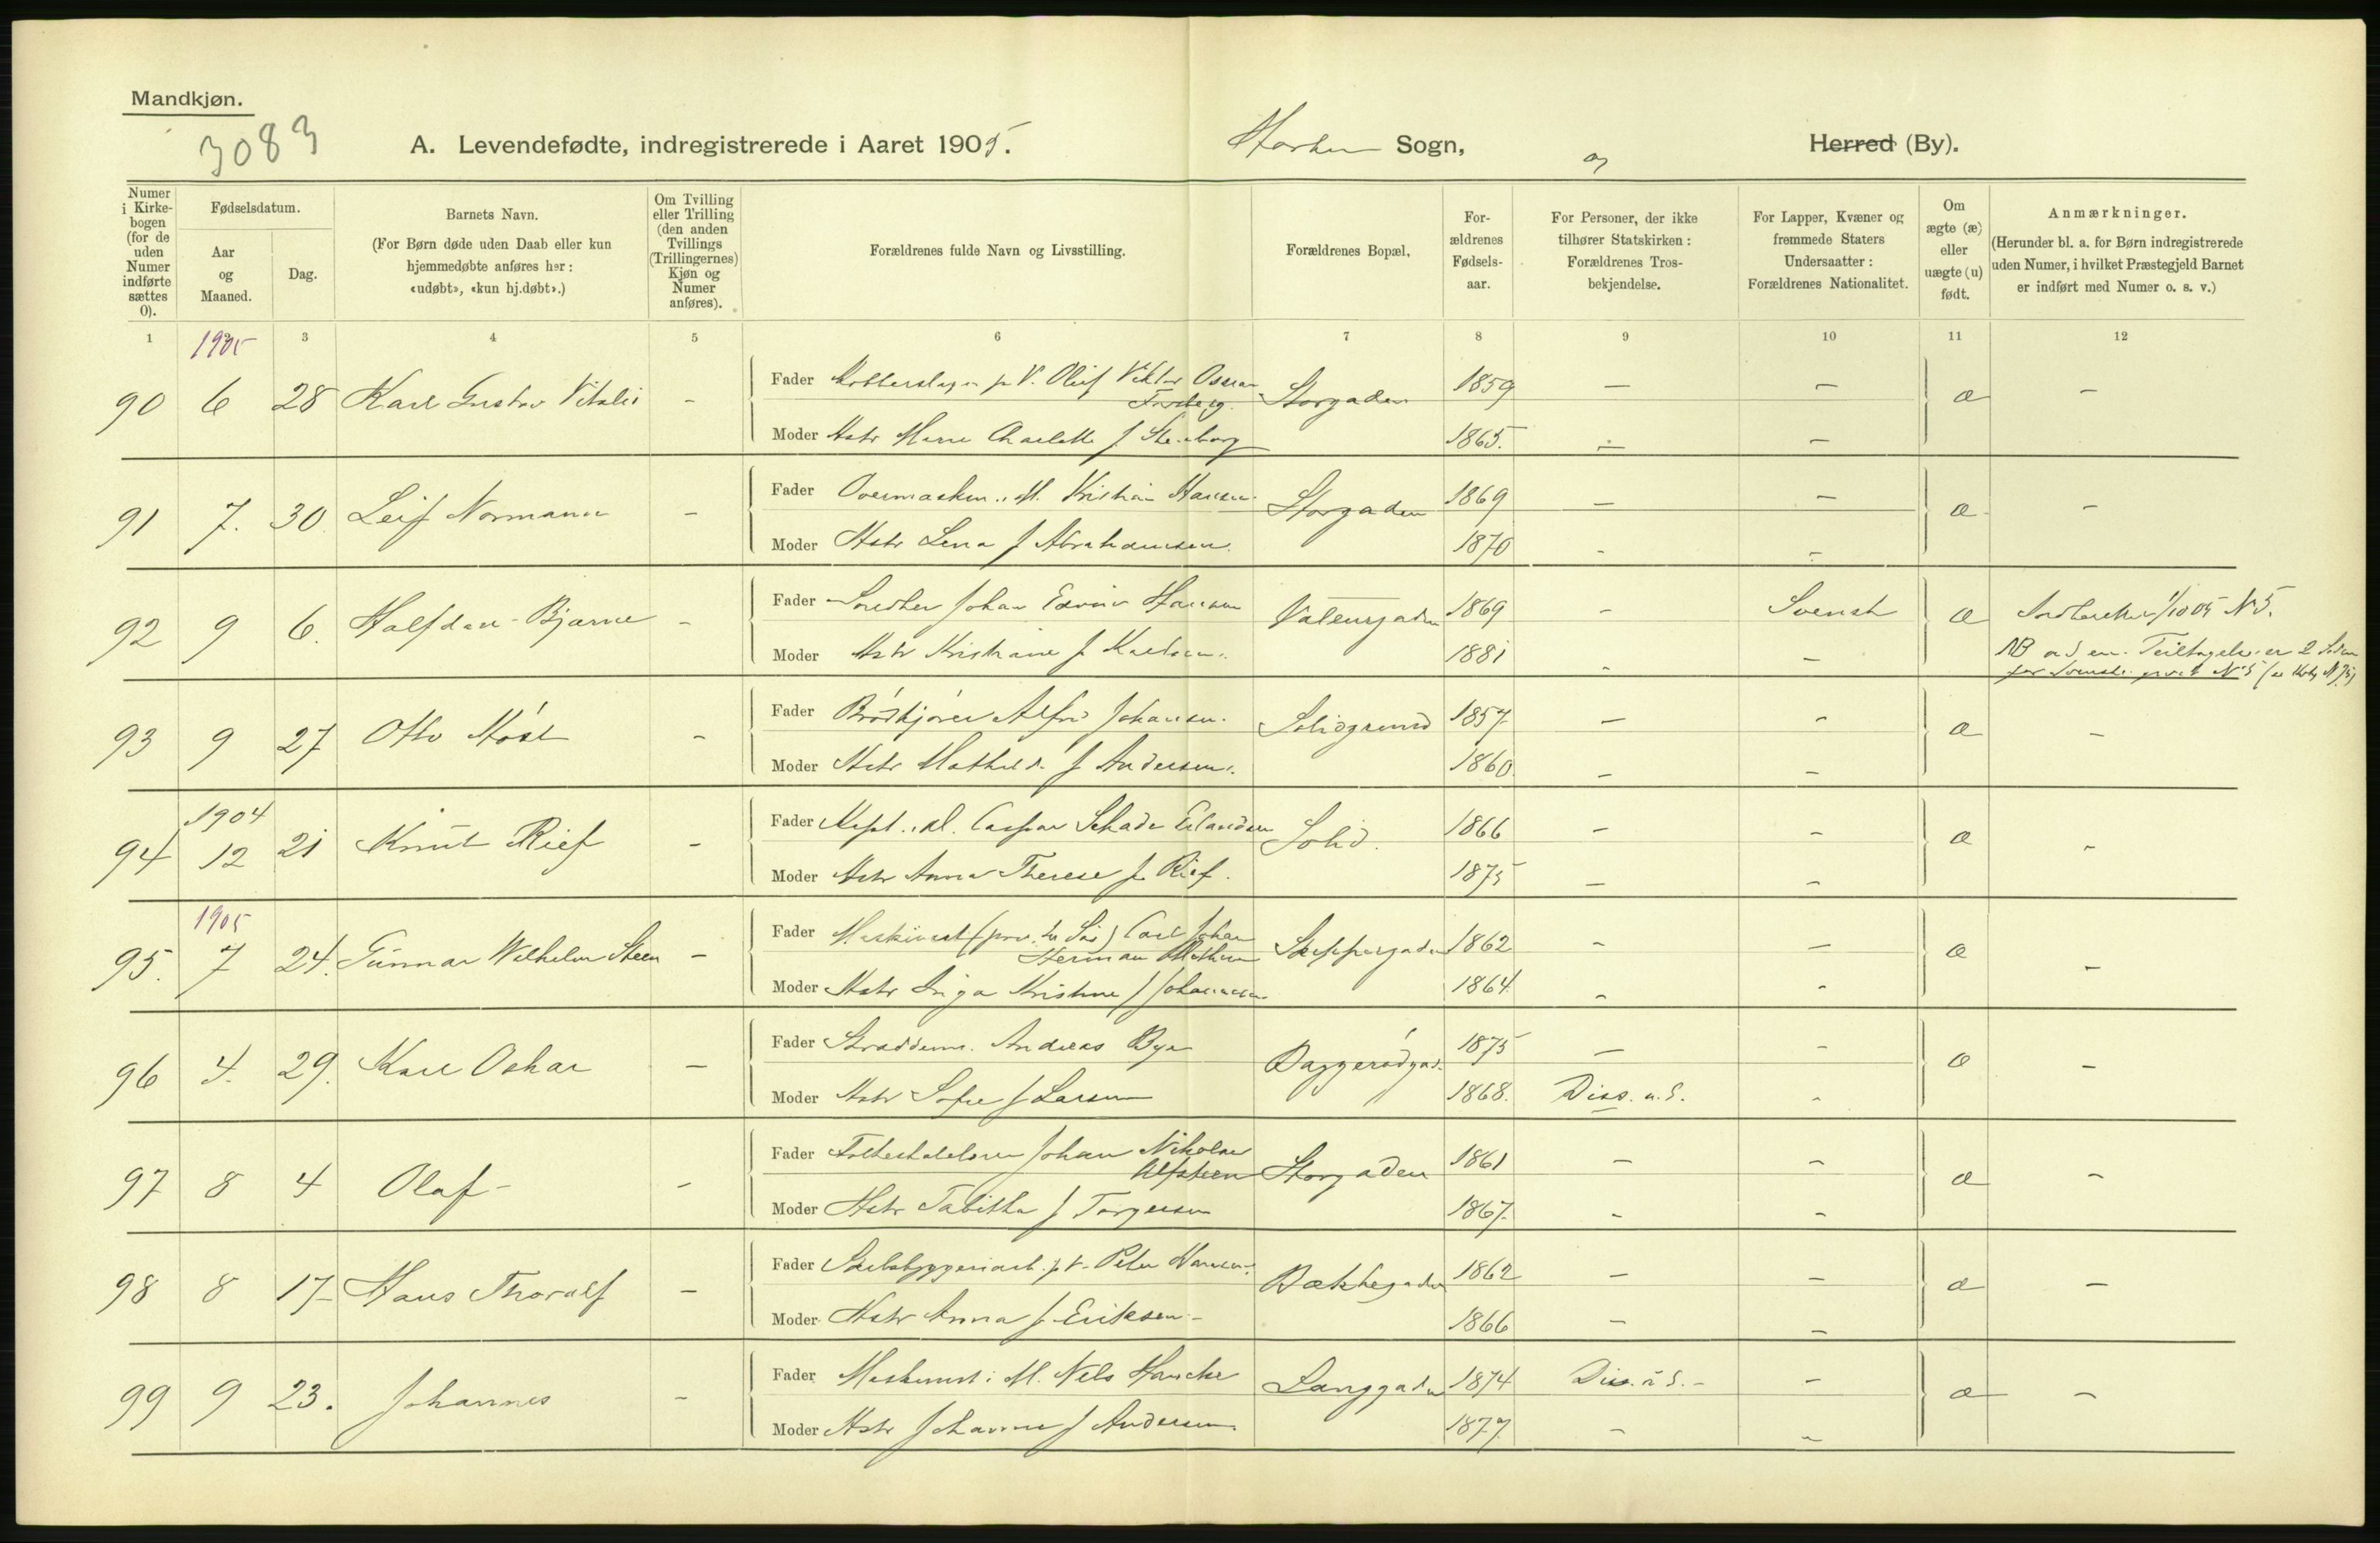 Mandkjøn.
3083
A. Levendefødte, indregistrerede i Aaret 1905.
Horten Sogn,
Herred (By).
Numer i Kirkebogen (for de uden Numer indførte sættes 0).
Fødselsdatum.
Aar og Maaned.
Dag.
Barnets Navn.
(For Børn døde uden Daab eller kun hjemmedøbte anføres her: «udøbt», «kun hj.døbt».)
Om Tvilling eller Trilling (den anden Tvillings (Trillingernes) Kjøn og Numer anføres).
Forældrenes fulde Navn og Livsstilling.
Forældrenes Bopæl,
Forældrenes Fødselsaar.
For Personer, der ikke tilhører Statskirken: Forældrenes Trosbekjendelse.
For Lapper, Kvæner og fremmede Staters Undersaatter: Forældrenes Nationalitet.
Om ægte (æ) eller uægte (u) født.
Anmærkninger.
(Herunder bl. a. for Børn indregistrerede uden Numer, i hvilket Præstegjeld Barnet er indført med Numer o. s. v.)
1 3 4 5 6 7 8 9 10 11 12
1905
90 6 28 Karl Gustav Vitalis - Fader Kobberslager p. V. Oluf Viktor Oscar Storgaden 1859 — — æ —
Forsberg.
Moder Hstr Marie Charlotte f Stenborg 1865. — —
91 7. 30 Leif Normann - Fader Overmaskin. i M. Kristian Hansen Storgaden 1869 — — æ —
Moder Hstr Lena f Abrahamsen. 1870 - -
92 9 6. Halfdan Bjarne - Fader Snedker Johan Edvin Hansen 1869 - Svensk æ 1/10 05 N 5.
Moder Hstr Kristiane f Karlsen. 1881 - — NB
93 9 27 Otto Kåre - Fader Brødkjører Alfred Johansen. Solidgrund 1857 — - æ —
Moder Hstr Mathilde f Andersen. 1860. — —
1904
94 12 21 Knut Rief - Fader Kapt. i M. Caspar Schade Erlandsen Solid. 1866 — - æ -
Moder Hstr Anna Therese f. Rief. 1875 — -
1905
95. 7 24. Gunnar Wilhelm Steen - Fader Carl Johan Skippergaden 1862 - — æ —
Herman
Moder Hstr Inga Kristine f Johannesen 1864. - -
96 4. 29. Karl Oskar — Fader Skrædderm. Andreas Bye 1875 — - æ —
Moder Hstr Sofie f Larsen 1868. Diss. u. S. -
97 8 4 Olaf - - Fader Johan Nikolai Storgaden 1861 — - æ -
Alfsteen
Moder Hstr Tabitha f Torgersen 1867. - -
98 8 17 Hans Thoralf — Fader Skibsbyggeriarb. p. V. Peter Hansen. Bakkegaden 1862 — — æ —
Moder Hstr Anna f. Eriksen - 1866 — —
99 9 23. Johannes - Fader Maskinist i M. Nels Hancke Langgaden 1874 Diss. u. S. - — æ —
Moder Hstr Johanne f Andersen. 1877 - -